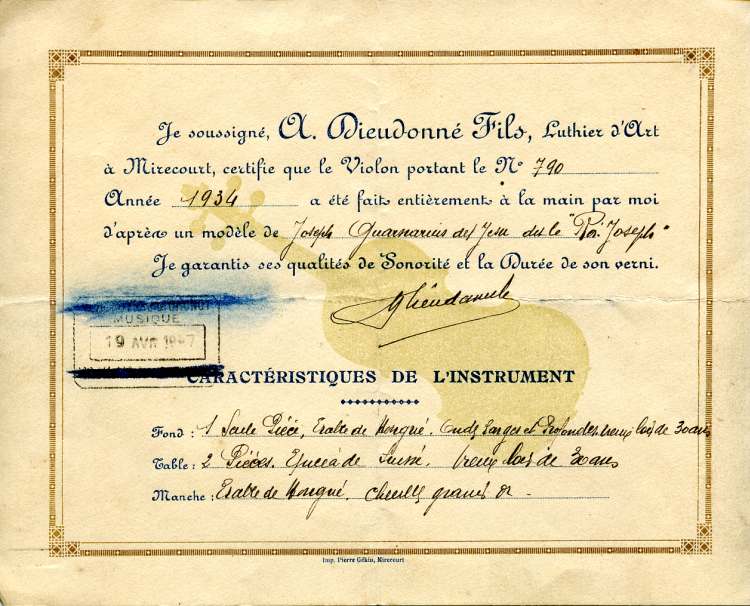 Je soussigné, A. Dieudonné Fils, Luthier d'Art
à Mirecourt, certifie que le Violon portant le N° 790
Année 1934 a été fait entièrement à la main par moi
d'après un modèle de Joseph Guarnarius del Jesu dit le "Roi Joseph"
Je garantis ses qualités de Sonorité et la Durée de son verni.
MUSIQUE
19 AVR
CARACTÉRISTIQUES DE L'INSTRUMENT
Fond : 1 Seule Pièce, Erable de Hongrie. Ondes Larges et Profondes vieux bois de 30 ans
Table : 2 Pièces. Epicéa de vieux bois de 30 ans
Manche : Erable de Hongrie.
Imp. Pierre Gékin, Mirecourt